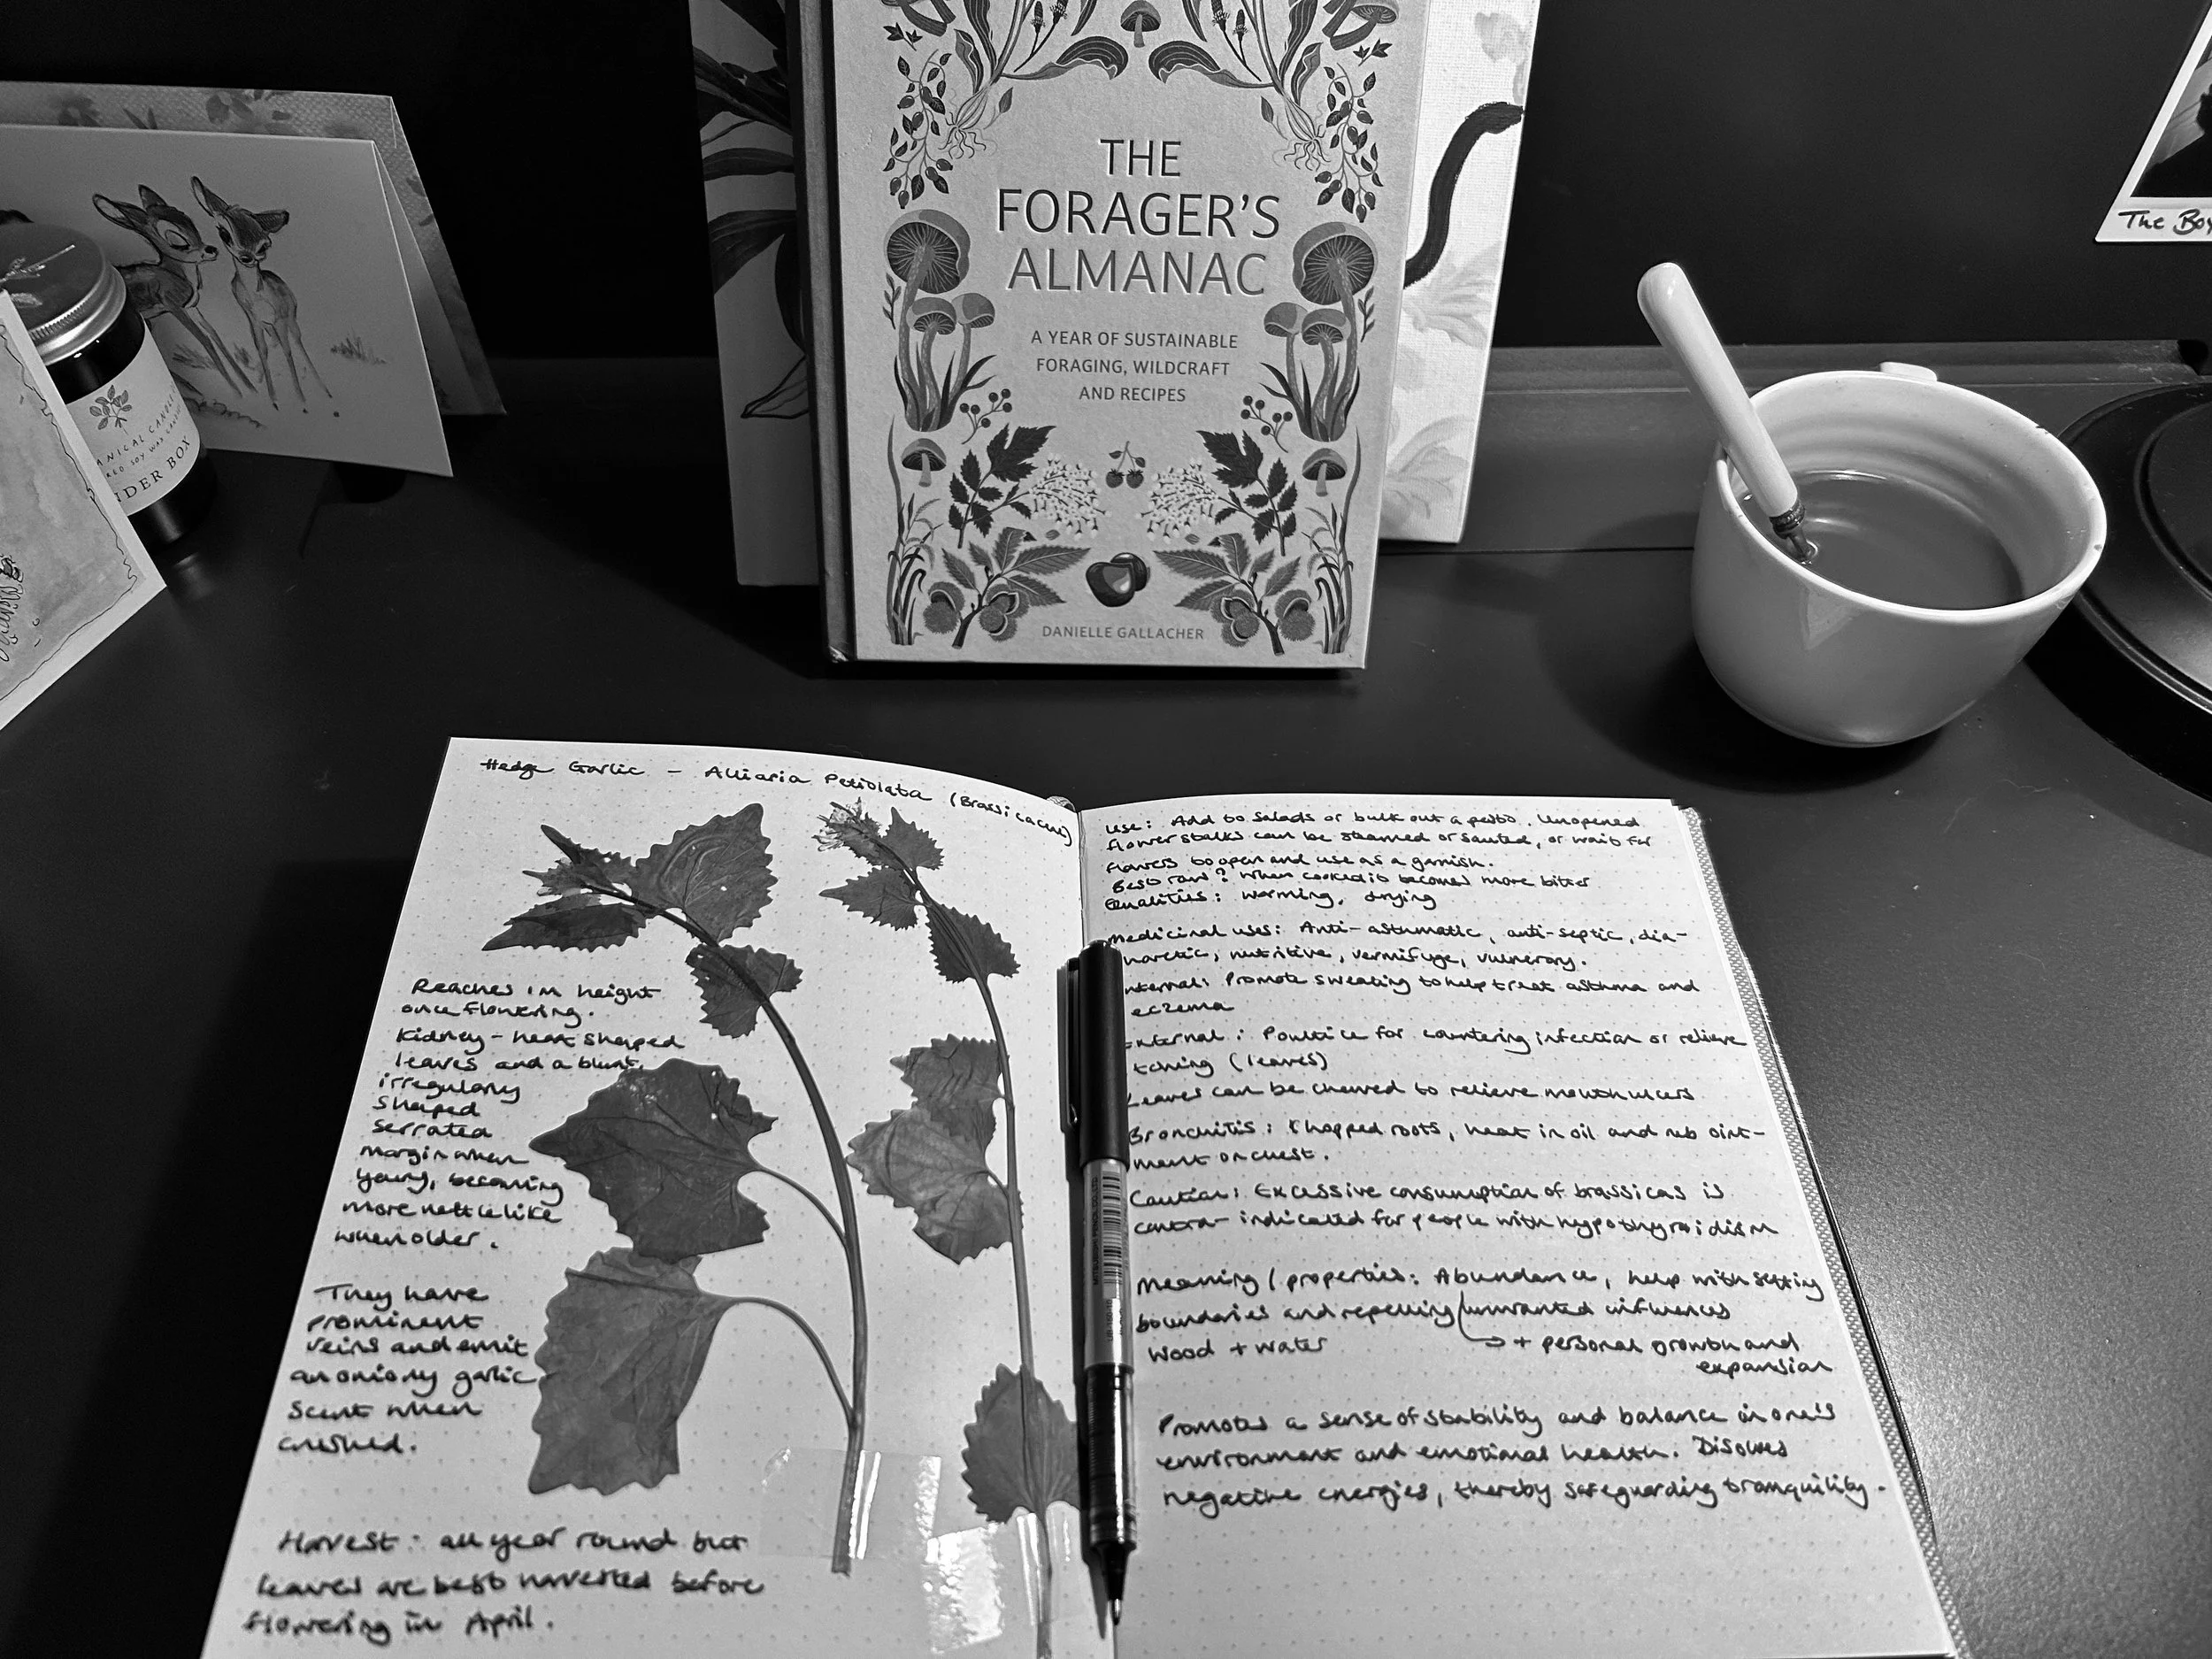 THE
FORAGER'S
ALMANAC
A YEAR OF SUSTAINABLE
FORAGING, WILDCRAFT
AND RECIPES
DANIELLE GALLACHER
The Boy
ANICAL CANDLE
RED SOY WAX CANDLE
NDER BOX
Hedge Garlic - Alliaria Petiolata (Brassicaceae)
Reaches 1m height
once flowering.
Kidney-heart shaped
leaves and a blunt,
irregularly
shaped
serrated
margin when
young, becoming
more nettle like
when older.
They have
prominent
veins and emit
an oniony garlic
scent when
crushed.
Harvest: all year round but
leaves are best harvested before
flowering in April.
Use: Add to salads or bulk out a pesto. Unopened
flower stalks can be steamed or sauted, or wait for
flowers to open and use as a garnish.
Best raw? When cooked it becomes more bitter
Qualities: warming, drying
Medicinal uses: Anti-asthmatic, anti-septic, dia-
horetic, nutritive, vermifuge, vulnerary.
nternal: Promote sweating to help treat asthma and
eczema
External: Poultice for countering infection or relieve
itching (leaves)
Leaves can be chewed to relieve mouth ulcers
Bronchitis: Chopped roots, heat in oil and rub oint-
ment on chest.
Caution: Excessive consumption of brassicas is
contra-indicated for people with hypothyroidism
Meaning/properties: Abundance, help with setting
boundaries and repelling unwanted influences
Wood + water → + personal growth and
expansion
Promotes a sense of stability and balance in one's
environment and emotional health. Disolves
negative energies, thereby safeguarding tranquility.